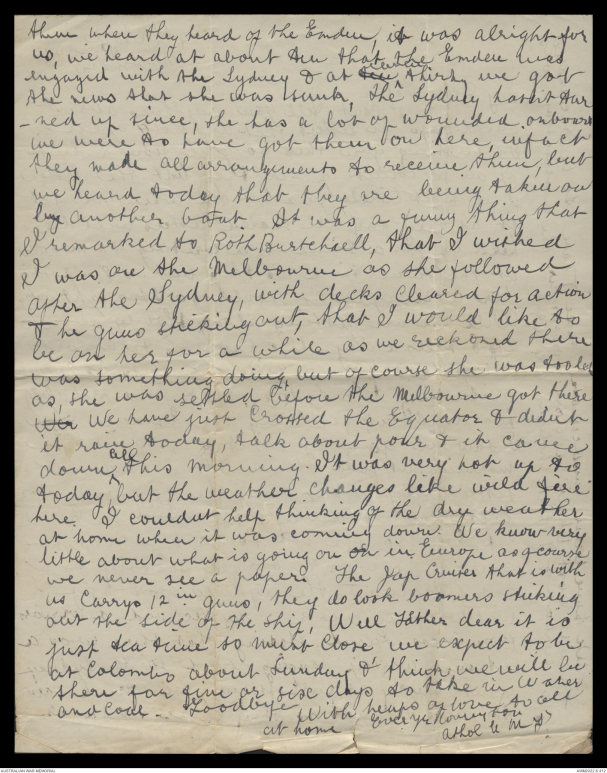 them when they heard of the Emden, it was alright for
us, we heard at about ten that the Emden was
engaged with the Sydney & at eleven thirty we got
the news that she was sunk, the Sydney hasnt tur
-ned up since, she has a lot of wounded onboard
we were to have got them on here, infact
they made all arrangements to receive them, but
we heard today that they are being taken on
by another boat. It was a funny thing that
I remarked to Roth Burtchaell, that I wished
I was on the Melbourne as she followed
after the Sydney, with decks cleared for action
& he guns sticking out, that I would like to
be on her for a while as we reckoned there
was something doing, but of course she was too late
as, she was settled before the Melbourne got there
We have just crossed the Equator & didnt
it rain today, talk about pour & it came
down all this morning. It was very hot up to
today, but the weather changes like wild fire
here. I couldnt help thinking of the dry weather
at home when it was coming down. We know very
little about what is going on in Europe as of course
we never see a paper. The Jap Cruiser that is with
us carrys 12 in guns, they do look boomers sticking
out the side of the ship, Well Father dear it is
just tea time so must close we expect to be
at Colombo about Sunday & think we will be
there for five or six days to take in water
and coal. Goodbye With heaps of love to all
at home Ever yr loving son
Athol
AUSTRALIAN WAR MEMORIAL